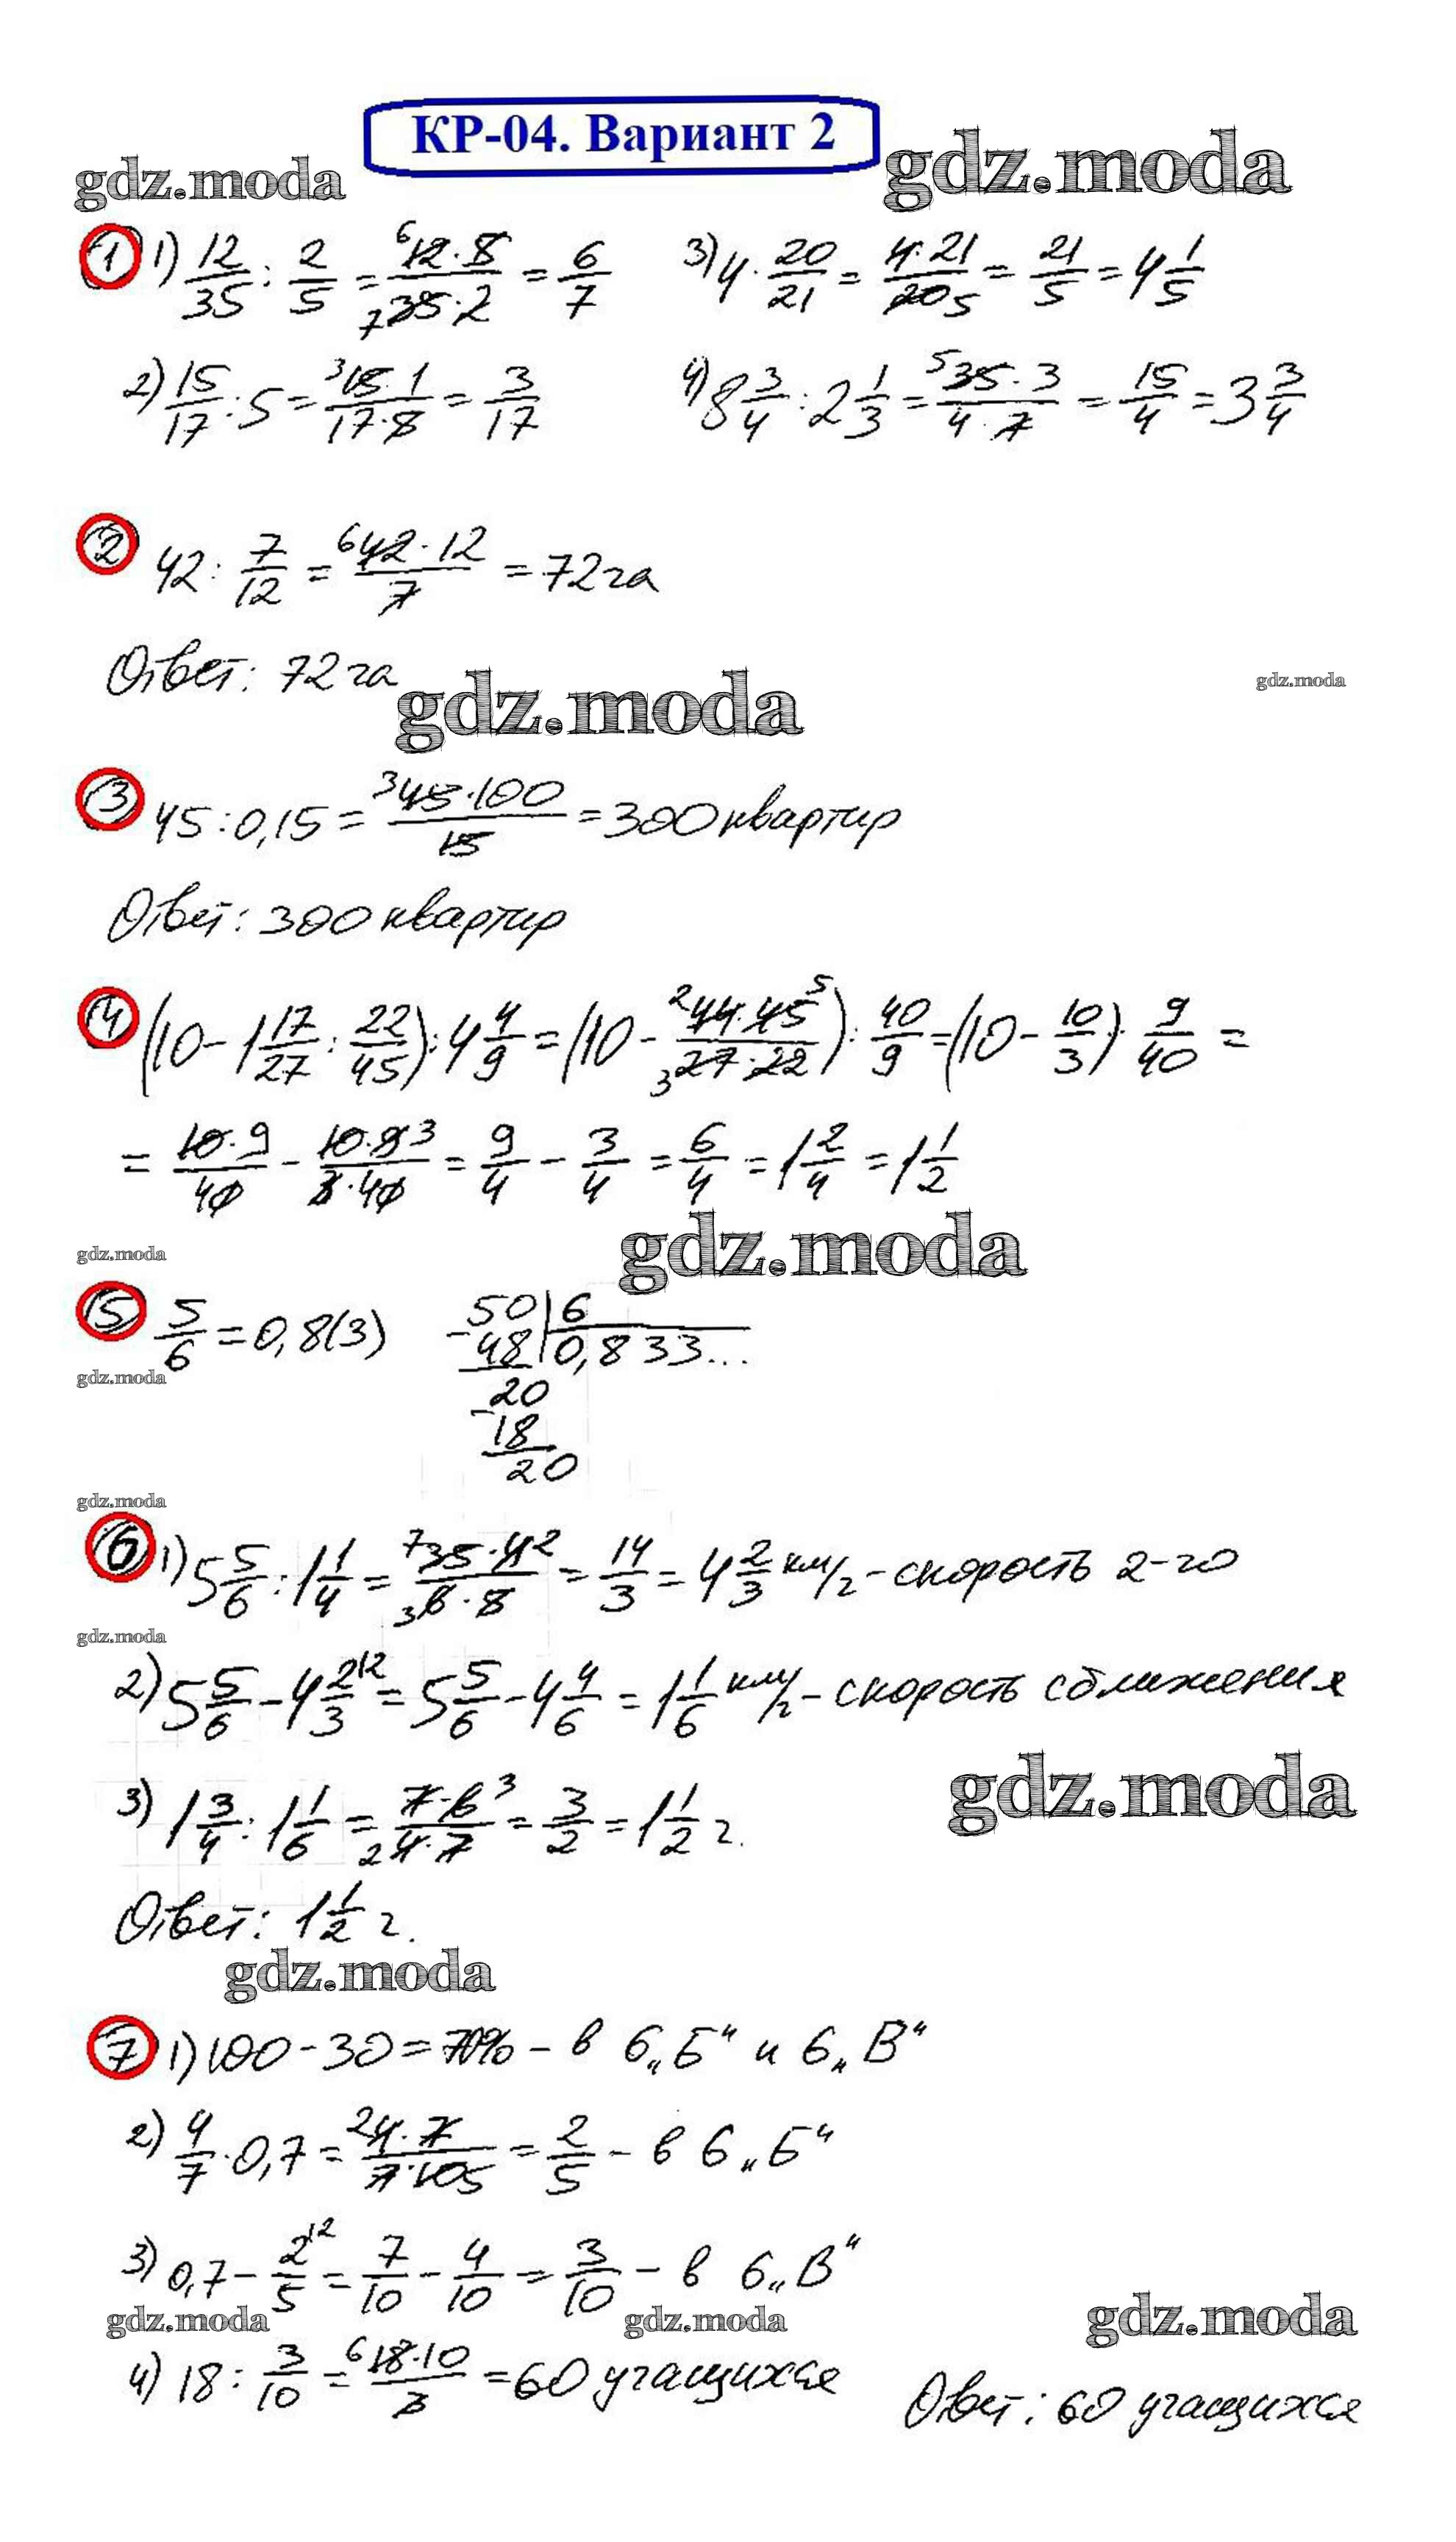 КР-04. Вариант 2
gdz.moda
gdz.moda
1 1) 12/35 : 2/5 = 12·5/35·2 = 6/7
3) 4 · 20/21 = 4·21/20 = 21/5 = 4 1/5
2) 15/17 : 5 = 15·1/17·5 = 3/17
4) 8 3/4 : 2 1/3 = 35·3/4·7 = 15/4 = 3 3/4
2 42 : 7/12 = 42·12/7 = 72 га
Ответ: 72 га
gdz.moda
gdz.moda
3 45 : 0,15 = 45·100/15 = 300 квартир
Ответ: 300 квартир
4 (10 - 1 17/27 : 22/45) : 4 4/9 = (10 - 44·45/27·22) : 40/9 = (10 - 10/3) · 9/40 =
= 10·9/40 - 10·9/3·40 = 9/4 - 3/4 = 6/4 = 1 2/4 = 1 1/2
gdz.moda
gdz.moda
5 5/6 = 0,8(3)
50 | 6
- 48 | 0,833...
20
- 18
20
gdz.moda
gdz.moda
6 1) 5 5/6 : 1 1/4 = 35·4/6·5 = 14/3 = 4 2/3 км/ч - скорость 2-го
gdz.moda
2) 5 5/6 - 4 2/3 = 5 5/6 - 4 4/6 = 1 1/6 км/ч - скорость сближения
gdz.moda
3) 1 3/4 : 1 1/6 = 7·6/4·7 = 3/2 = 1 1/2 ч.
Ответ: 1 1/2 ч.
gdz.moda
7 1) 100 - 30 = 70% - в 6 „Б“ и 6 „В“
2) 4/7 · 0,7 = 4·7/7·10 = 2/5 - в 6 „Б“
3) 0,7 - 2/5 = 7/10 - 4/10 = 3/10 - в 6 „В“
gdz.moda
gdz.moda
gdz.moda
4) 18 : 3/10 = 18·10/3 = 60 учащихся
Ответ: 60 учащихся